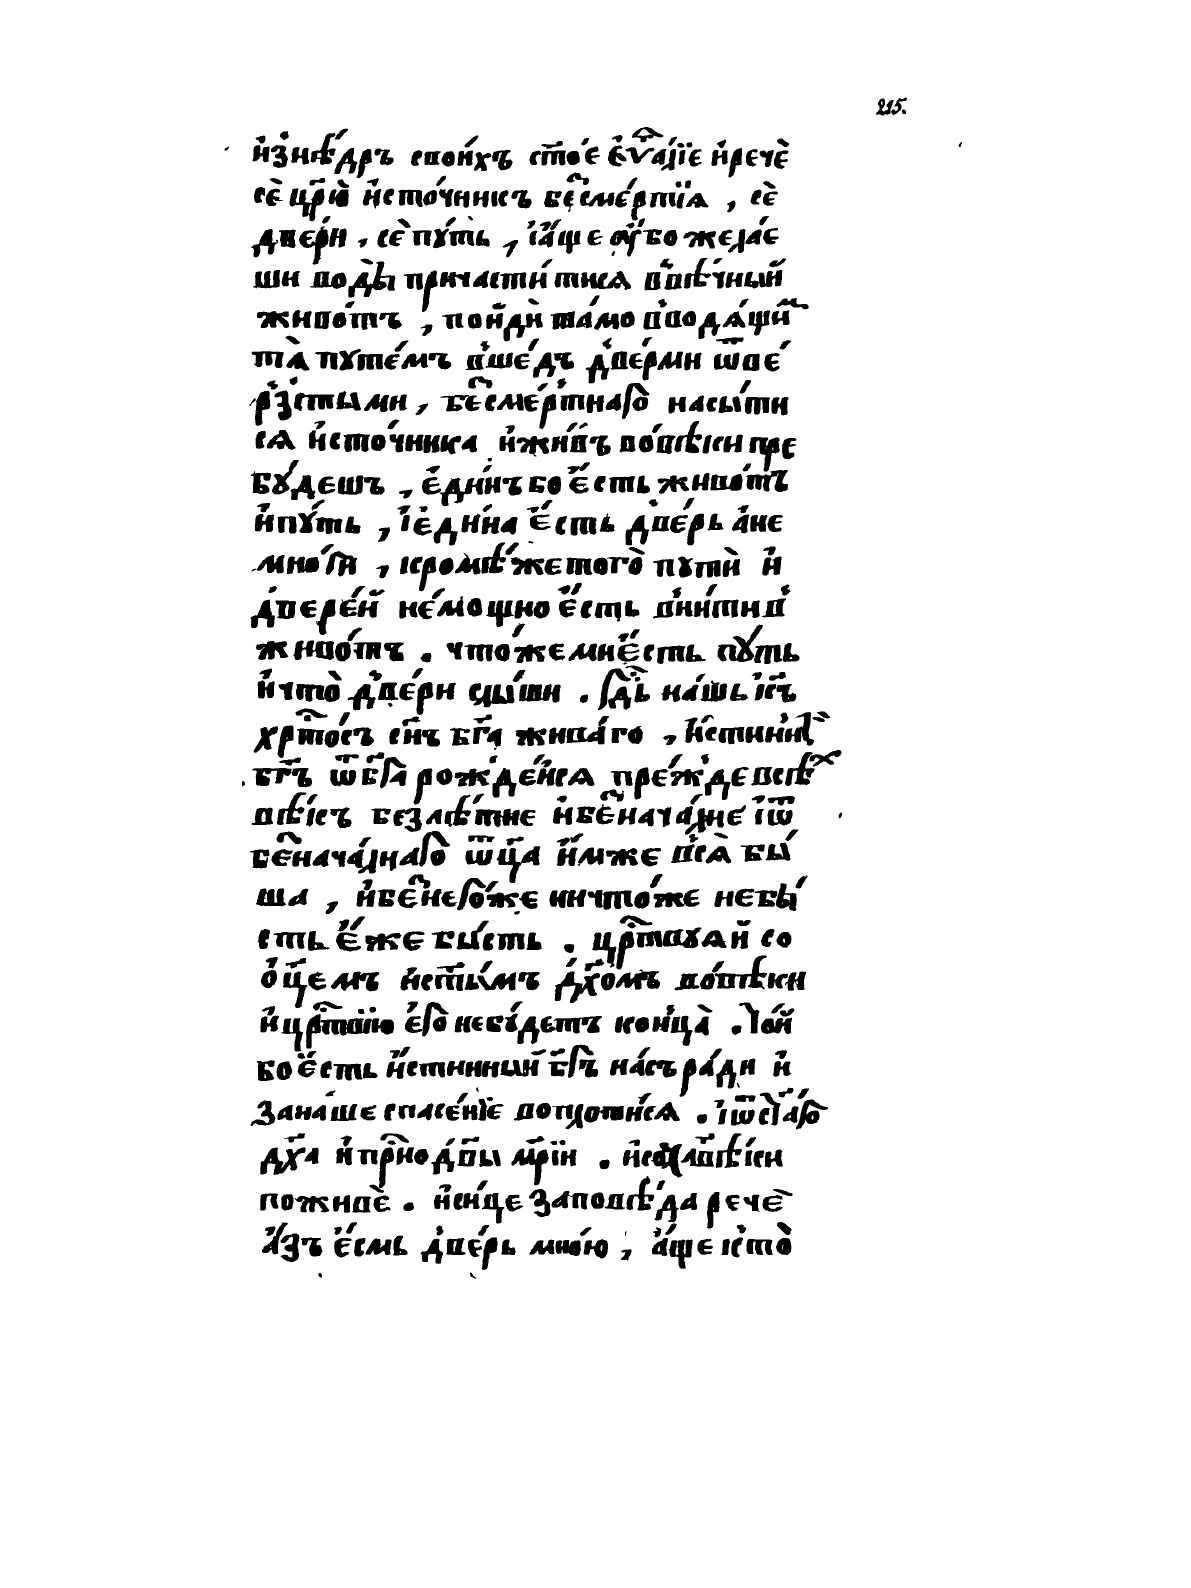 215.
и҆з̾нѣ́дръ свои́хъ ст҃о́е є҆ѵⷢ҇а́лїе и҆речѐ
сѐ цр҃ю̀ и҆сто́чникъ беⷥ҇сме́ртїѧ , сѐ
две́ри , сѐ пꙋ́ть , і҆а҆́ще ᲂу҆́бо жела́е
ши воды̀ причасти́тисѧ в̾вѣ́чный
живо́тъ , пои҆дѝ та́мо в̾водѧ́щиⷨ
тѧ̀ пꙋте́мъ в̾ше́дъ две́рми ѿве́
рз̾стыми , беⷥ҇сме́ртнагѡ насы́ти
сѧ и҆сто́чника и҆жи́въ во́вѣки пре
бꙋ́деши , є҆ди́нъ бо є҆́сть живо́тъ
и҆пꙋ́ть , і҆є҆ди́на є҆́сть две́рь а҆не
мно́гїѧ , кромѣ́жетого̀ пꙋтѝ и҆
двере́й не́мощно є҆́сть вни́ти в̾
живо́тъ . что́жемнѝє҆сть пꙋ́ть
и҆что̀ две́ри слы́ши . гдⷭ҇ь на́шъ і҆с҃ъ
хрⷭ҇то́съ сн҃ъ бг҃а жива́го , и҆́стинныⷨ
бг҃ъ ѿбг҃а рожде́йсѧ пре́жде всѣⷯ
вѣ́къ безлѣ́тне и҆беⷥ҇нача́лне і҆ѿ
беⷥ҇нача́лнагѡ ѿц҃а и҆́мже всѧ̀ бы́
ша , и҆беⷥ҇негѡ́же ничто́же небы́
сть є҆́же бы́сть . црⷭ҇твꙋѧй со
ѻ҆ц҃емъ и҆ст҃ы́мъ дх҃омъ во́вѣки
и҆црⷭ҇твїю є҆гѡ̀ небꙋ́детъ конца̀ . То́й
бо є҆́сть и҆́стинный бг҃ъ на́съ ра́ди и҆
зана́ше спасе́нїе воплоти́сѧ . і҆ѿст҃а́гѡ
дх҃а и҆прⷭ҇нодв҃ы мр҃їи . и҆сꙋ҆л҃вѣ́ки
поживѐ . и҆си́це заповѣ́да речѐ
А҆́зъ є҆́смь две́рь мно́ю , а҆́ще кто̀